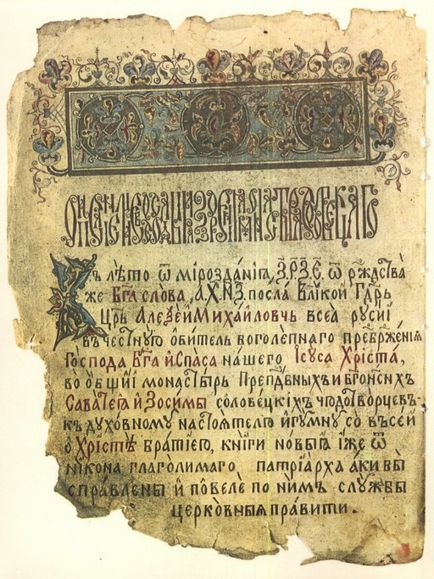 Въ лѣто ѿ мірозданїѧ, ЗРЗЄ, ѿ рждства
же Бга слова, АХНЗ, посла Вликой Гдрь
Црь Алеѯей Михайловчь всеа русиї
въ честную ѻбитель боголепнаго преѡбрженїѧ
Господа Бга и Спаса нашего Ісуса Хріста,
во ѻбщій монастырь Преподбныхъ и Бгоносныхъ
Саватеѧ и Зосимы соловецкїхъ чюдотворцевъ
къ духовному настоѧтелю игумну со всѣѕй
о Христѣ братиею, книги новыѧ їже ѿ
никона глаголимаго патріарха аки бы
справлены и повеле по нимъ службы
церковныѧ правити.